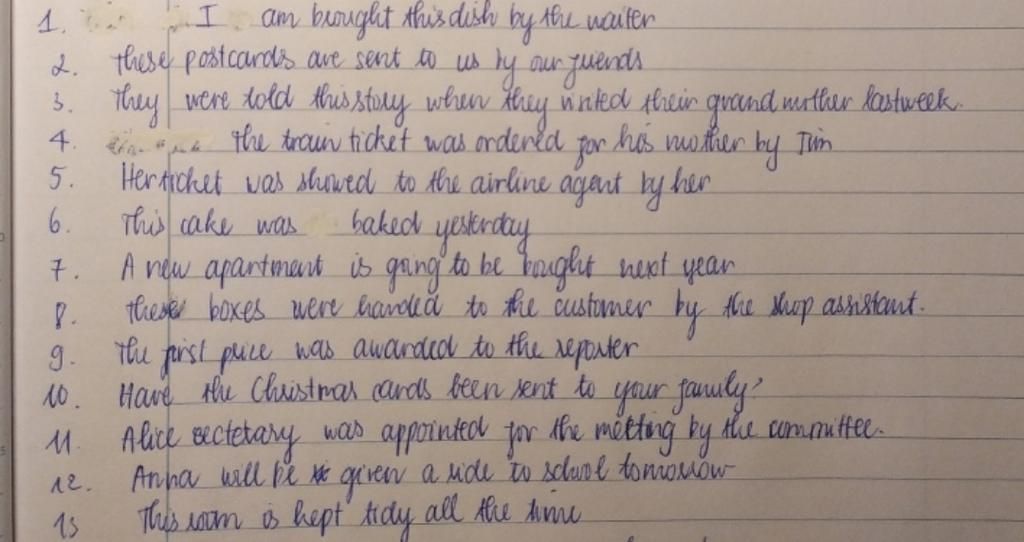 1. I am brought this dish by the waiter
2. These postcards are sent to us by our friends
3. They were told this story when they visited their grandmother last week.
4. The train ticket was ordered for his mother by Jim
5. Her ticket was showed to the airline agent by her
6. This cake was baked yesterday
7. A new apartment is going to be bought next year
8. These boxes were handed to the customer by the shop assistant.
9. The first price was awarded to the reporter
10. Have the Christmas cards been sent to your family?
11. Alice sectetary was appointed for the meeting by the committee.
12. Anna will be given a ride to school tomorrow
13 This room is kept tidy all the time